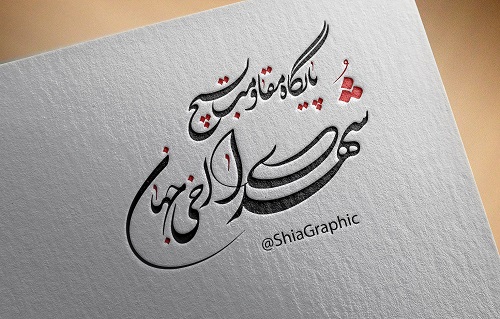 پایگاه مقاومت بسیج
شهدای الخی جهان
@ShiaGraphic